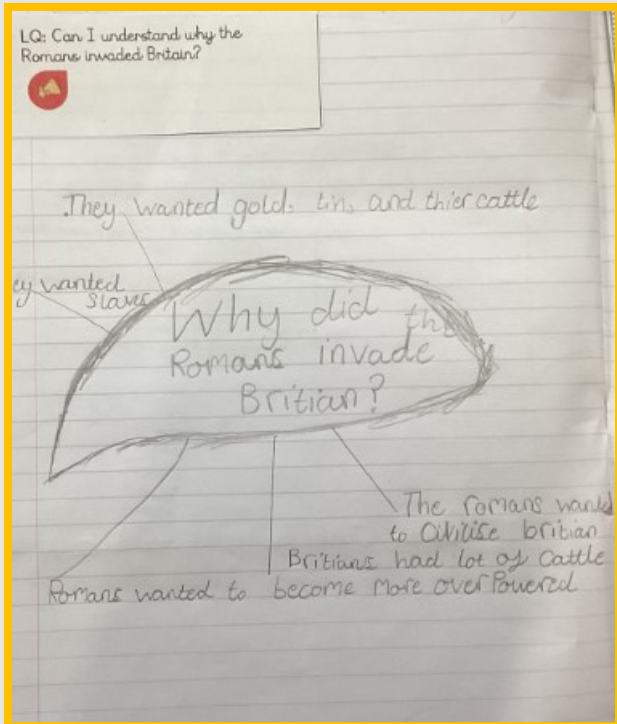 LQ: Can I understand why the
Romans invaded Britain?
They wanted gold, tin, and thier cattle
ey wanted
slaves
Why did the
Romans invade
Britian?
The romans wanted
to civilise britian
Britians had lot of cattle
Romans wanted to become more overPowered